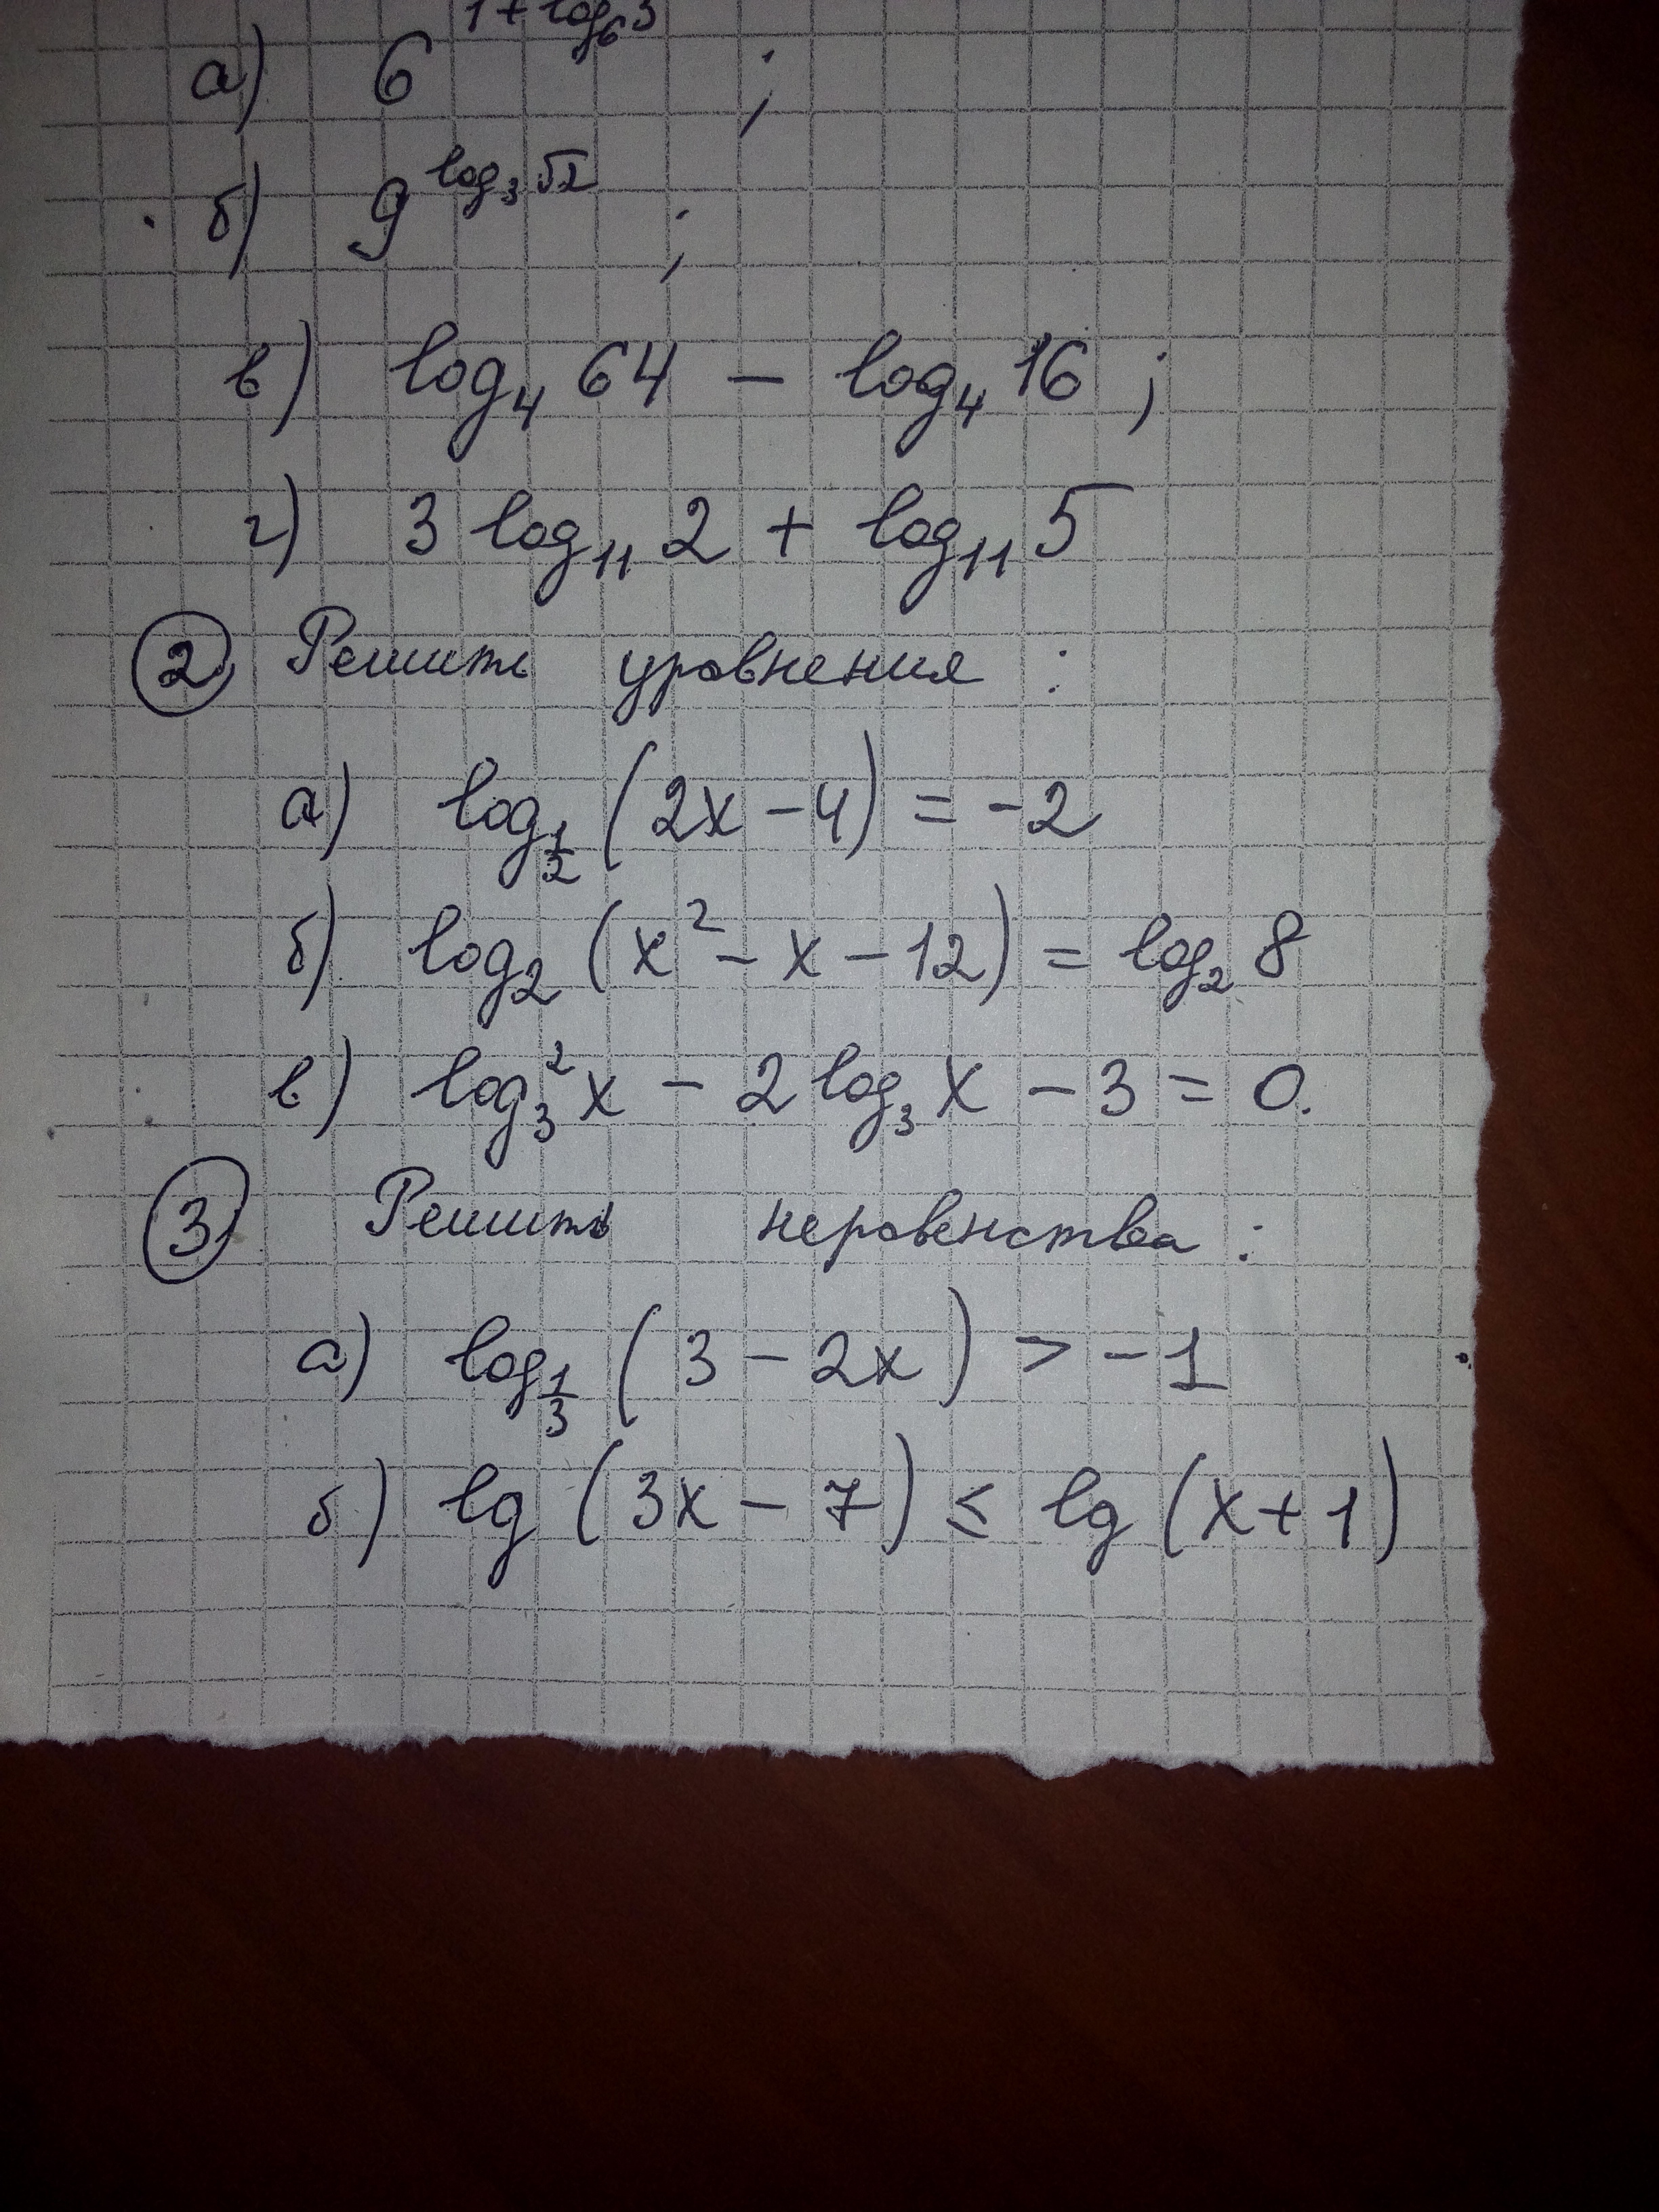 а) 6^(1 + log₆ 3) ;
б) 9^(log₃ √2) ;
в) log₄ 64 − log₄ 16 ;
г) 3 log₁₁ 2 + log₁₁ 5
② Решить уравнения :
а) log_(1/2) (2x − 4) = −2
б) log₂ (x² − x − 12) = log₂ 8
в) log₃² x − 2 log₃ x − 3 = 0.
③ Решить неравенства :
а) log_(1/3) (3 − 2x) > −1
б) lg (3x − 7) ≤ lg (x + 1)